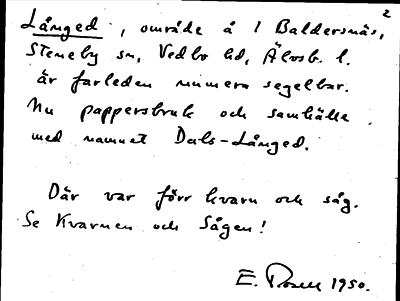 2
Långed, område å 1 Baldersnäs,
Steneby sn, Vedbo hd, Älvsb. l.
är farleden numera segelbar.
Nu pappersbruk och samhälle
med namnet Dals-Långed.
Där var förr kvarn och såg.
Se Kvarnen och Sågen!
E. Rosell 1950.